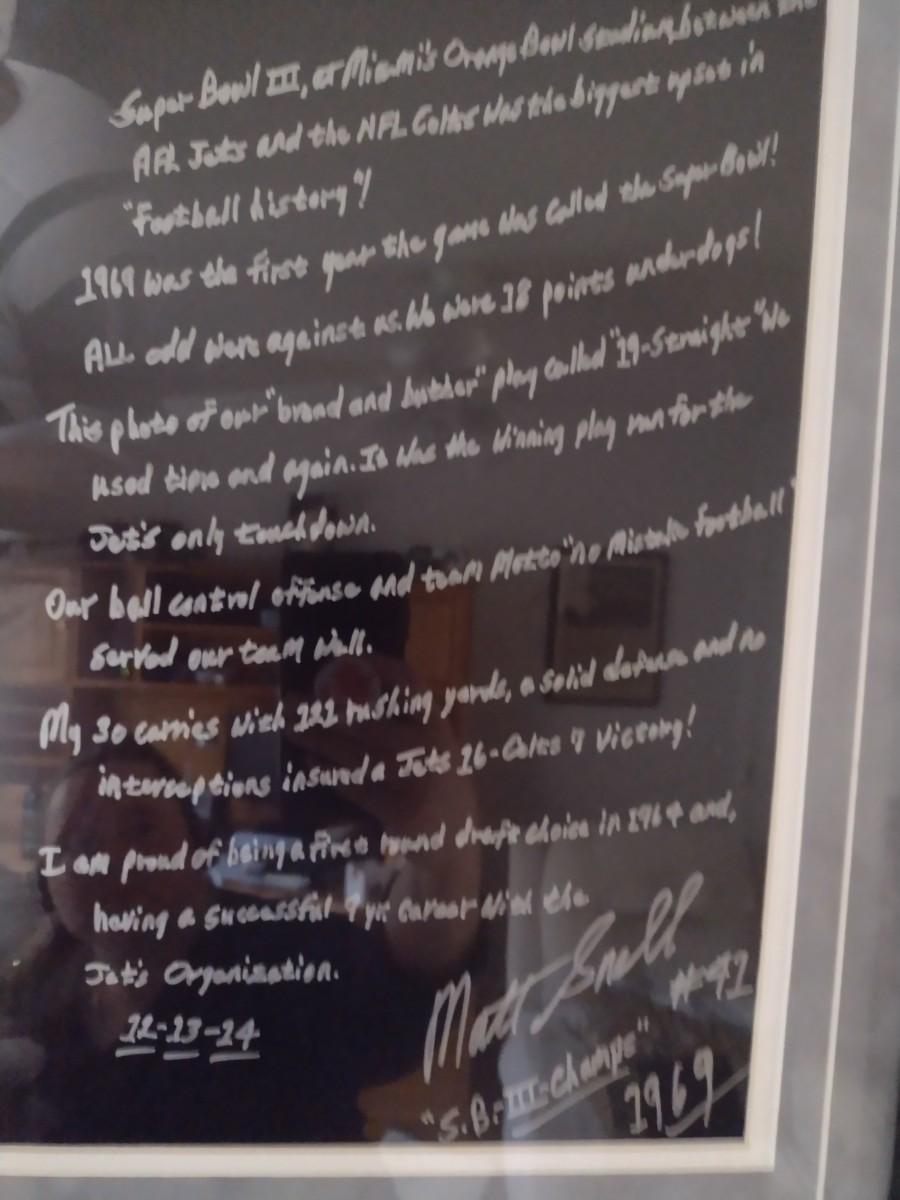 Super Bowl III, at Miami's Orange Bowl between the
AFL Jets and the NFL Colts was the biggest upset in
"Football history"!
1969 was the first year the game was called the Super Bowl!
ALL odd were against us. We were 18 points underdogs!
This photo of our "bread and butter" play called "19-Straight" We
used time and again. It was the winning play run for the
Jet's only touchdown.
Our ball control offense and team Motto "no Mistake football"
served our team well.
My 30 carries with 121 rushing yards, a solid defense and no
interceptions insured a Jets 16-Colts 7 Victory!
I am proud of being a first round draft choice in 1964 and,
having a successful 9 yr. career with the
Jet's Organization.
12-13-14
Matt Snell
#41
"S.B.-III-Champs"
1969